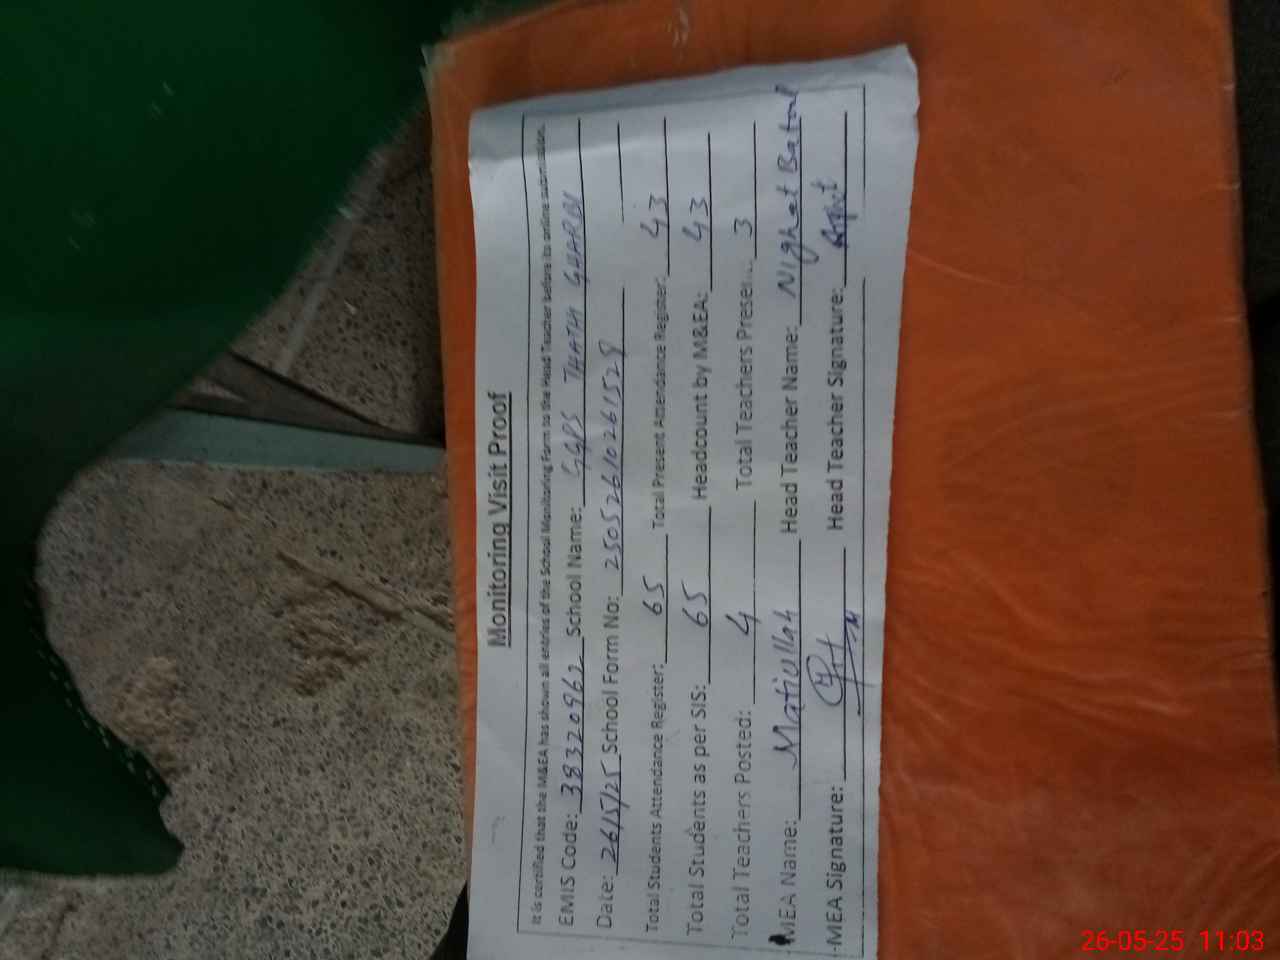 Monitoring Visit Proof
It is certified that the M&EA has shown all entries of the School Monitoring Form to the Head Teacher before its online submission.
EMIS Code: 38320962 School Name: GGPS THATHI GHARBI
Date: 26/5/25 School Form No: 25052610261528
Total Students Attendance Register: 65 Total Present Attendance Register: 43
Total Students as per SIS: 65 Headcount by M&EA: 43
Total Teachers Posted: 4 Total Teachers Present: 3
MEA Name: Matiullah Head Teacher Name: Nighat Batool
MEA Signature: Head Teacher Signature:
26-05-25 11:03